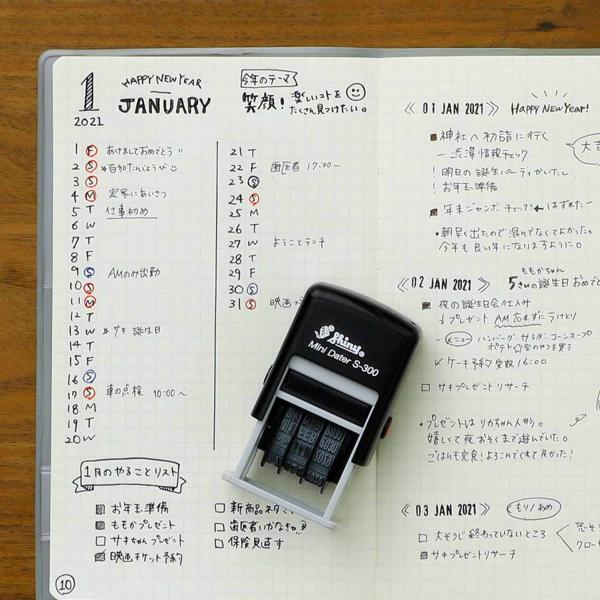 1
2021
HAPPY NEW YEAR
JANUARY
今年のテーマ
笑顔!
楽しいコトを
たくさん見つけたい。
1 F あけましておめでとう!!
2 S
3 S
4 M 定家にあいさつ
5 T 仕事初め
6 W
7 T
8 F
9 S AMのみ出勤
10 S
11 M
12 T
13 W サキ誕生日
14 T
15 F
16 S
17 S 車の点検 10:00〜
18 M
19 T
20 W
21 T
22 F 歯医者 17:00〜
23 S
24 S
25 M
26 T
27 W ようことランチ
28 T
29 F
30 S
31 S 映画
1月のやることリスト
お年玉準備
ももかプレゼント
サキちゃんプレゼント
映画チケット予約
新商品ネタ
歯医者いかなきゃ!!
保険見直す
10
Shiny®
Mini Dater S-300
FEB
01 JAN 2021
HAPPY NEW YEAR!
神社へ初詣に行く
→渋滞情報チェック
! 明日の誕生パーティかいだし
! お年玉準備
年末ジャンボチェック!← はずれたー
・朝早く出たので混んでなくてよかった。
今年も良い年になりますように。
大吉
02 JAN 2021
ももかちゃん
5さいの誕生日おめでと
夜の誕生日会仕込み
プレゼント AM忘れずにうけとり
メニュー ハンバーグ・サラダ・コーンスープ
ポテト☆型のやつを買う
ケーキ予約受取 16:00
サキプレゼントリサーチ
・プレゼントはリカちゃん人形。
嬉しくて夜おそくまで遊んでいた。
ごはんも完食!よろこんでくれて良かった!
03 JAN 2021
大そうじ終わっていないところ
サキプレゼントリサーチ
窓そ
クロー